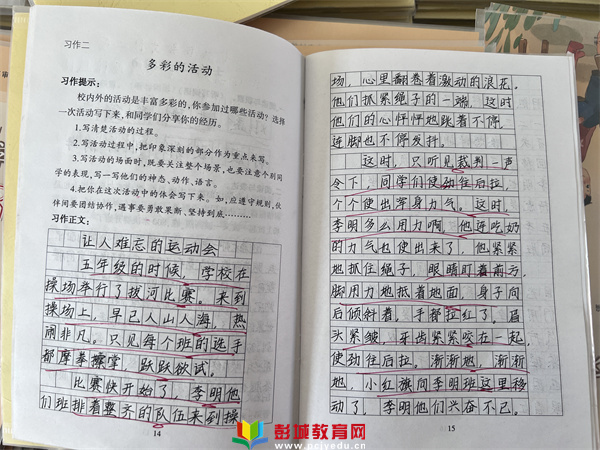 习作二
多彩的活动
习作提示:
校内外的活动是丰富多彩的,你参加过哪些活动?选择
一次活动写下来,和同学们分享你的经历。
1.写清楚活动的过程。
2.写活动过程中,把印象深刻的部分作为重点来写。
3.写活动的场面时,既要关注整个场景,也要注意个别同
学的表现,写一写他们的神态、动作、语言。
4.把你在这次活动中的体会写下来。如,应遵守规则,伙
伴间要团结协作,遇事要勇敢果断、坚持到底………
习作正文:
让人难忘的运动会
五年级的时候,学校在
操场举行了拔河比赛。来到
操场上,早已人山人海,热
闹非凡。只见每个班的选手
都摩拳擦掌,跃跃欲试。
比赛快开始了,李明他
们班排着整齐的队伍来到操
14
场,心里翻卷着激动的浪花。
他们抓紧绳子的一端,这时
他们的心怦怦地跳着不停,
连脚也不停发抖。
这时,只听见裁判一声
令下,同学们使劲往后拉,
个个使出浑身力气。这时,
李明多么用力啊,他连吃奶
的力气也使出来了,他紧紧
地抓住绳子,眼睛盯着前方,
脚用力地抵着地面,身子向
后倾斜着,手都拉红了。眉
头紧皱,牙齿紧紧咬在一起,
使劲往后拉。渐渐地,渐渐
地,小红旗向李明班这里移
动了,李明他们兴奋不已。
15
彭城教育网
www.pcjyedu.cn